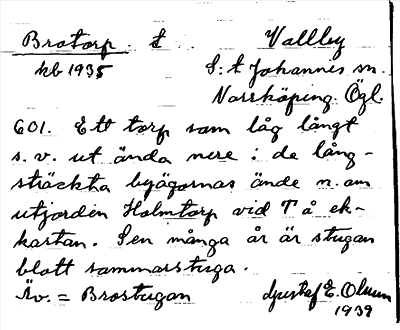 Brotorp. t Vallby
kb 1935 S:t Johannis sn.
Norrköping Ögl.
601. Ett torp som låg långt
s.v. ut ända nere i de lång-
sträckta byägornas ände n. om
utjorden Holmtorp vid T å ek-
kartan. Sen många år är stugan
blott sommarstuga.
Äv. = Brostugan Gustaf E. Olsson
1939